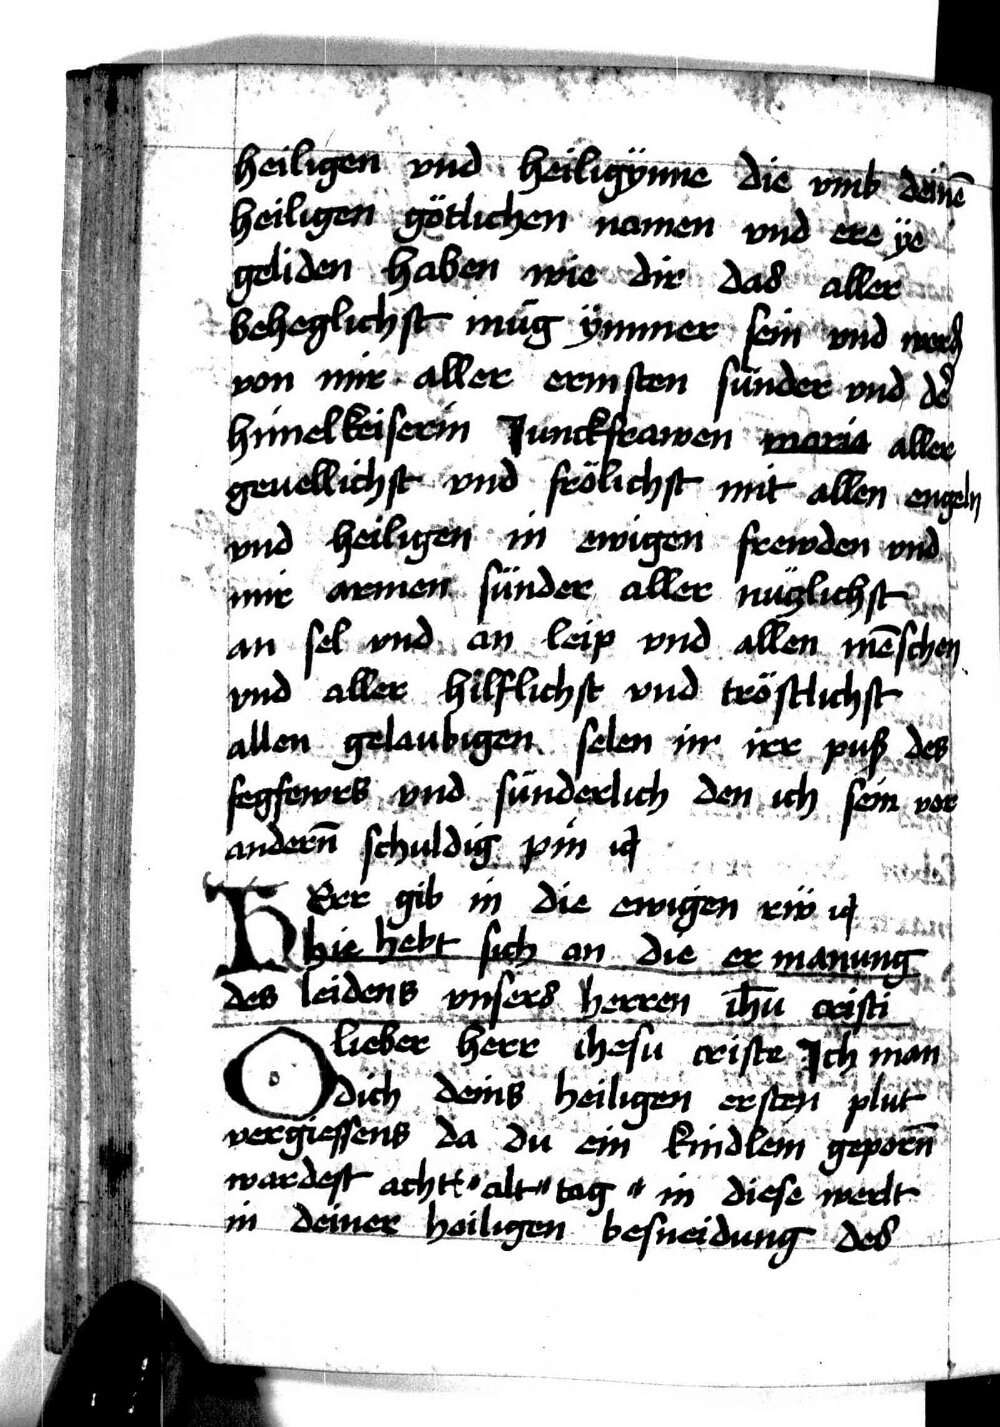 heiligen vnd heiligÿnne die vmb deinē
heiligen götlichen namen vnd ere ÿe
geliden haben wie dir das aller
beheglichst müg ÿmmer sein vnd werd
von mir aller ermsten sünder vnd de
himelkeiserin Junckfrawen maria aller
geuellichst vnd frölichst mit allen engeln
vnd heiligen in ewigen frewden vnd
mir armen sünder aller nüczlichst
an sel vnd an leip vnd allen mēschen
vnd aller hilflichst vnd tröstlichst
allen gelaubigen selen in irr puß des
fegfewrs vnd sünderlich den ich sein vor
andern̄ schuldig pin
HErr gib in die ewigen rẅ
hie hebt sich an die ermanung
des leidens vnsers herren ih̄u cristi
O lieber herr ihesu criste Ich man
dich deins heiligen ersten plut
vergiessens da du ein kindlein geporn̄
wardest acht "alt" tag " in diese werlt
in deiner heiligen besneidung des